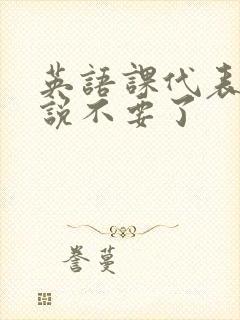 英語課代表
說不要了
譽蔓